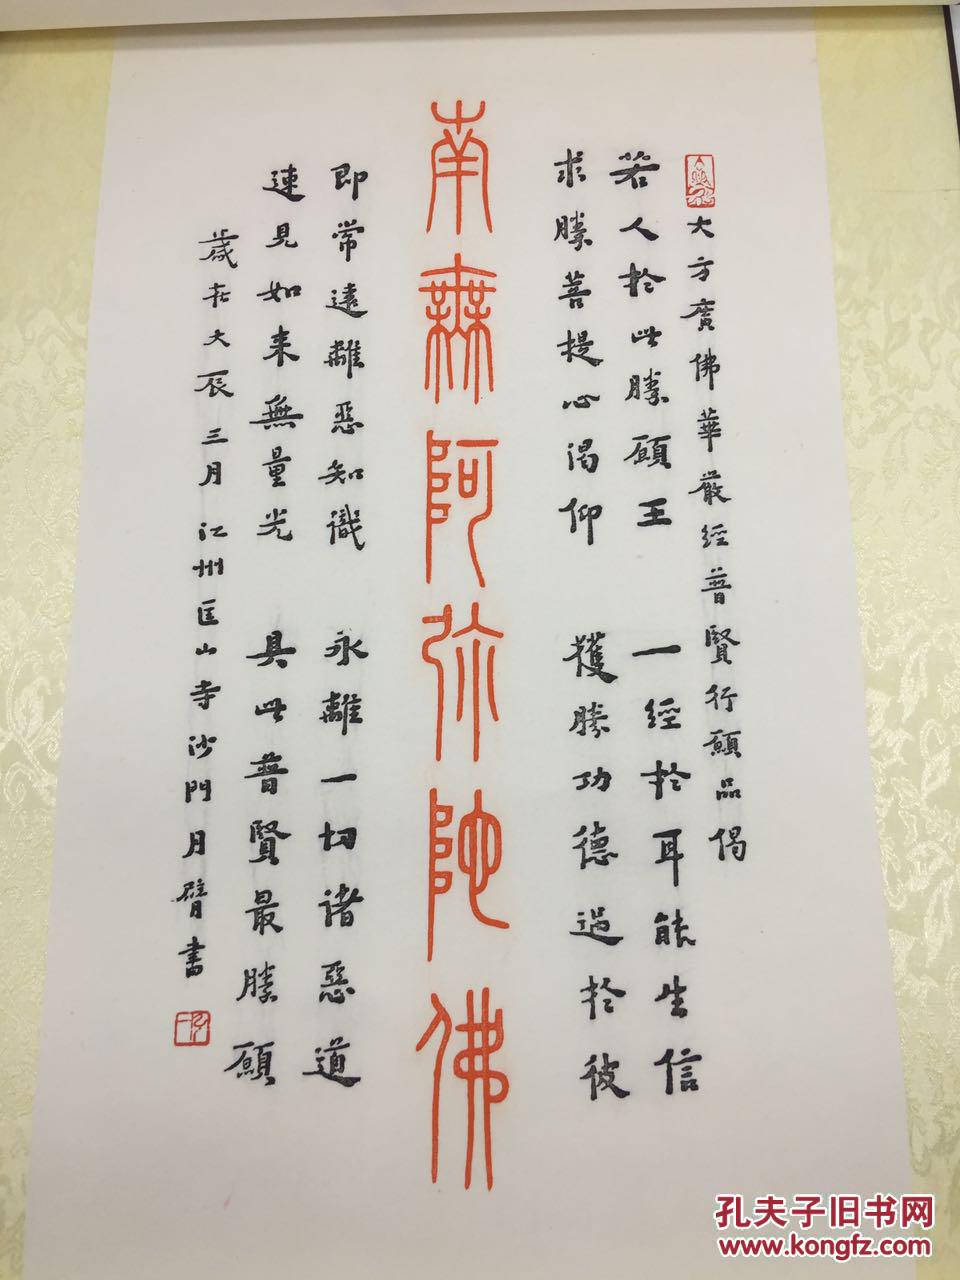 大方廣佛華嚴經普賢行願品偈
若人於此勝願王 一經於耳能生信
求勝菩提心渴仰 獲勝功德過於彼
南無阿弥陀佛
即常遠離惡知識 永離一切諸惡道
速見如来無量光 具此普賢最勝願
歲在大辰三月江州匡山寺沙門月臂書
弘一
孔夫子旧书网
www.kongfz.com